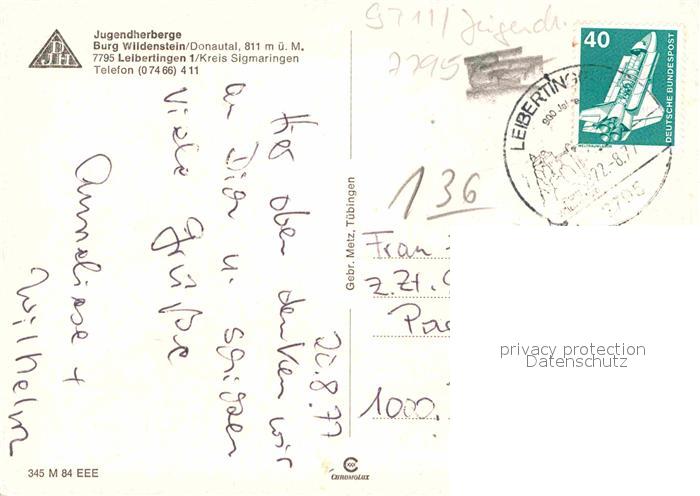 Jugendherberge
Burg Wildenstein/Donautal, 811 m ü. M.
7795 Leibertingen 1/Kreis Sigmaringen
Telefon (0 74 66) 4 11
DJH
22.8.77
Hier oben denken wir
an Dich u. schicken
viele Grüße
Anneliese +
Wilhelm
345 M 84 EEE
Gebr. Metz, Tübingen
CHROMOLUX
9711/Jugendh.
7795
136
40
DEUTSCHE BUNDESPOST
LEIBERTING
900 Jahre
22.-8.77
7795
Frau
z.Zt.
1000
privacy protection
Datenschutz